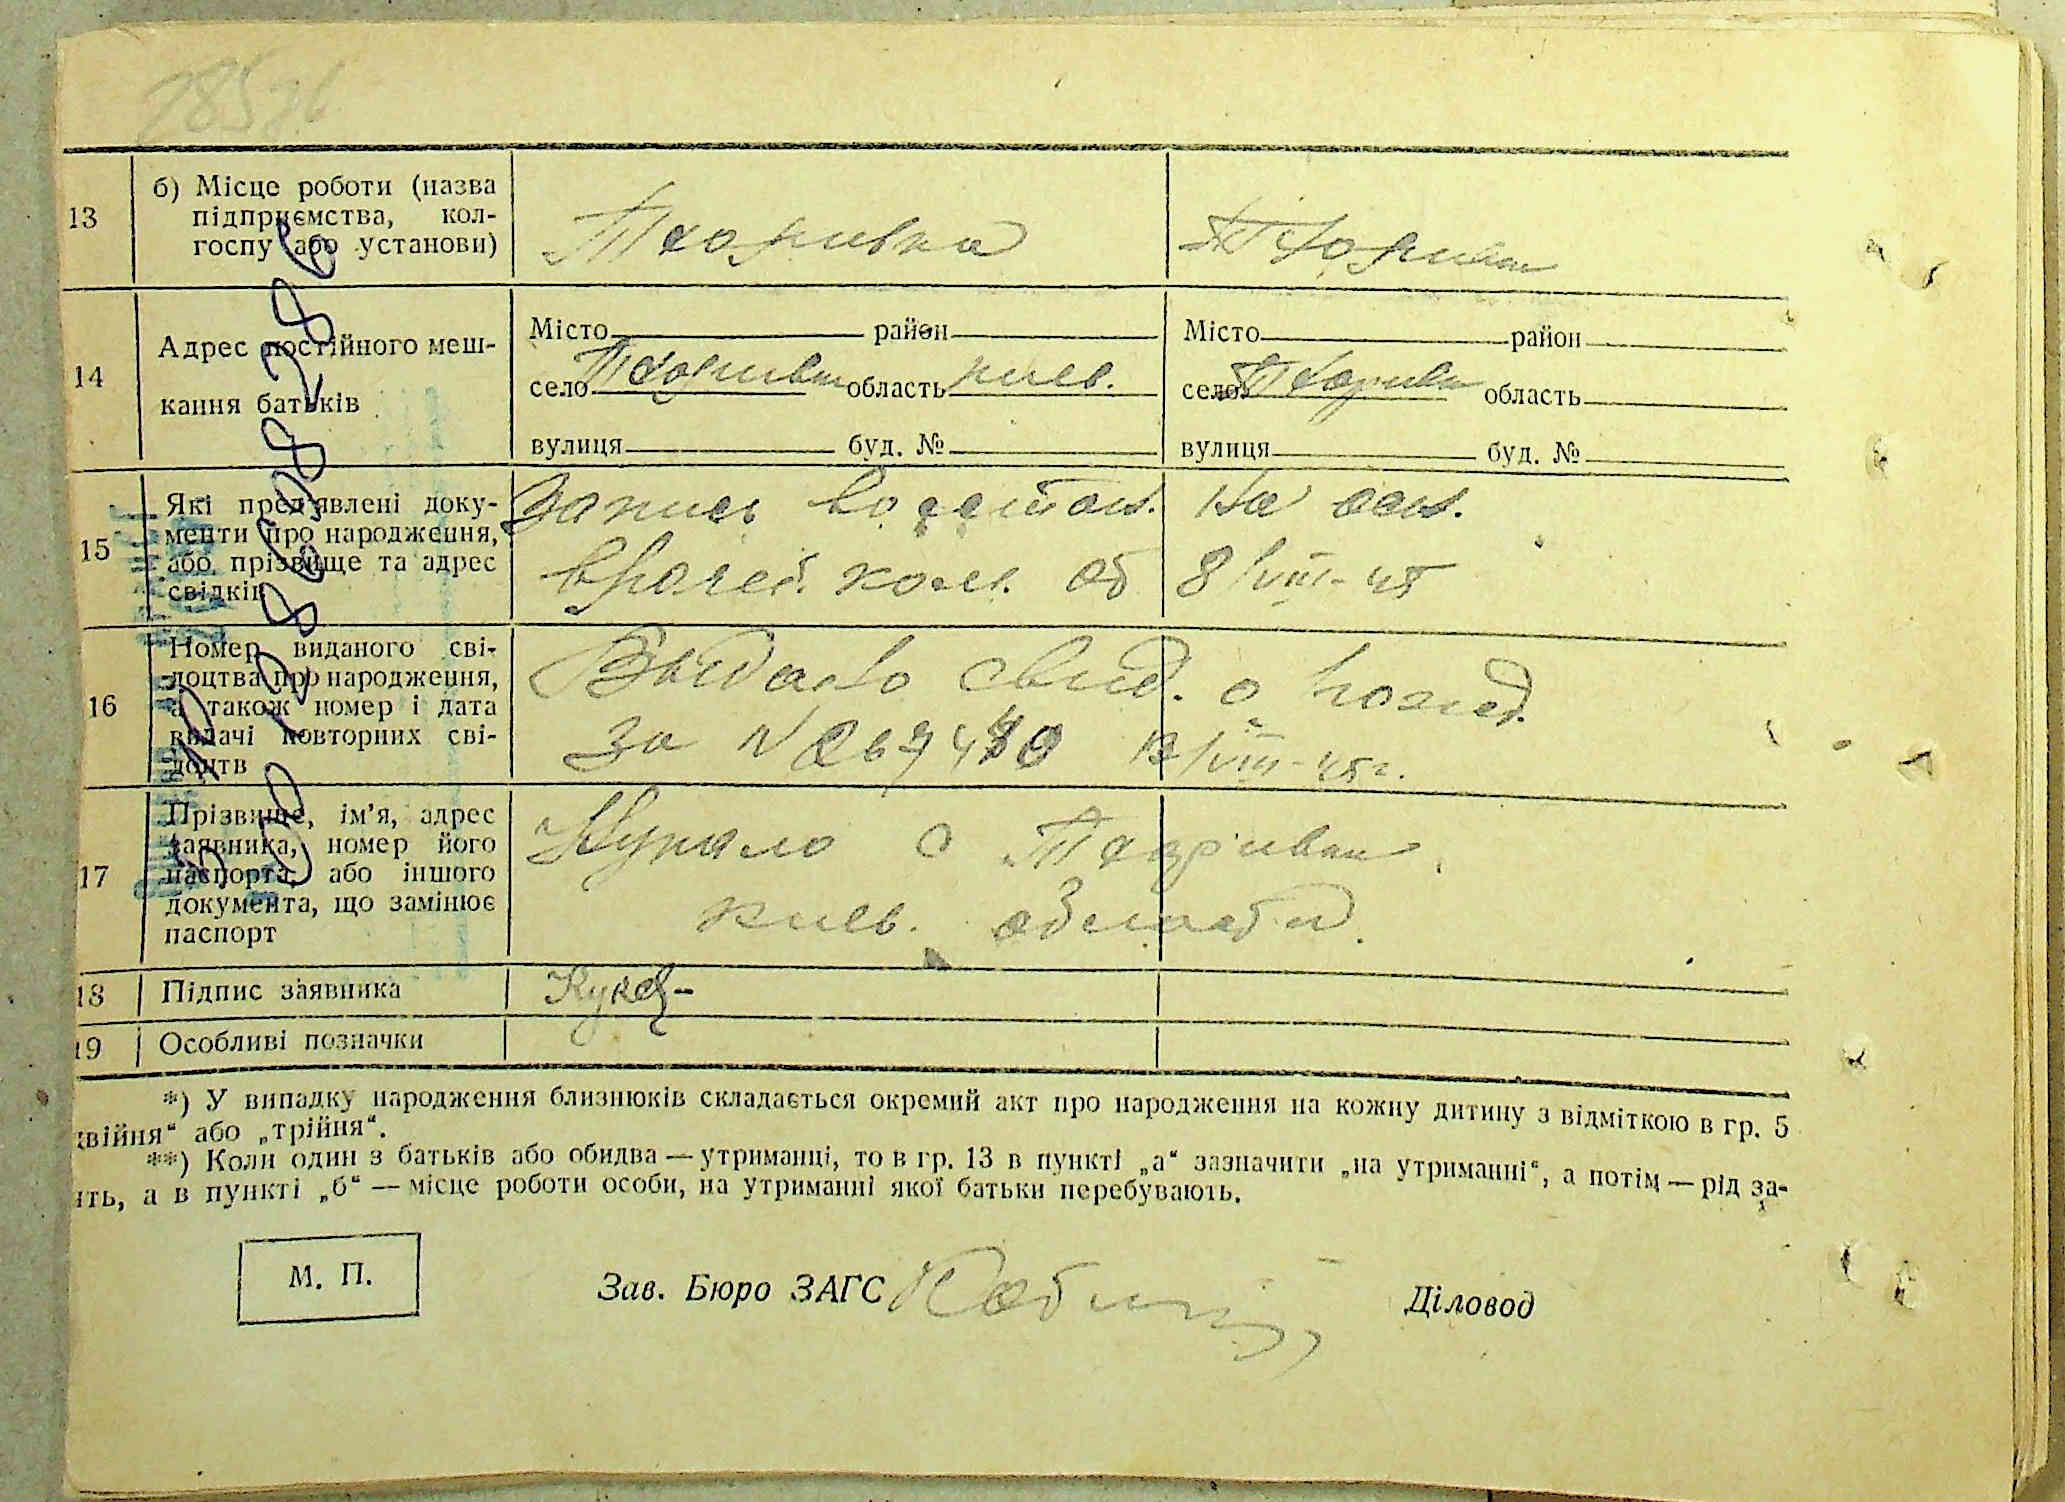 13
б) Місце роботи (назва
підприємства, кол-
госпу або установи)
Тхоривка
Тхоривка
14
Адрес постійного меш-
кання батьків
Місто район
село Тхоривка область киев.
вулиця буд. №
Місто район
село Тхоривка область
вулиця буд. №
15
Які пред'явлені доку-
менти про народження,
або прізвище та адрес
свідків
Запись восстан. на осн.
врачеб. ком. от 8/VIII-45
16
Номер виданого сві-
доцтва про народження,
а також номер і дата
видачі повторних сві-
доцтв
Выдано свид. о рожд.
за N 13/VIII-45 г.
17
Прізвище, ім'я, адрес
заявника, номер його
паспорта, або іншого
документа, що замінює
паспорт
с Тхоривка
киев. области
18
Підпис заявника
19
Особливі позначки
*) У випадку народження близнюків складається окремий акт про народження на кожну дитину з відміткою в гр. 5
війня“ або „трійня“.
**) Коли один з батьків або обидва — утриманці, то в гр. 13 в пункті „а“ зазначити „на утриманні“, а потім — рід за-
ть, а в пункті „б“ — місце роботи особи, на утриманні якої батьки перебувають.
М. П.
Зав. Бюро ЗАГС
Діловод